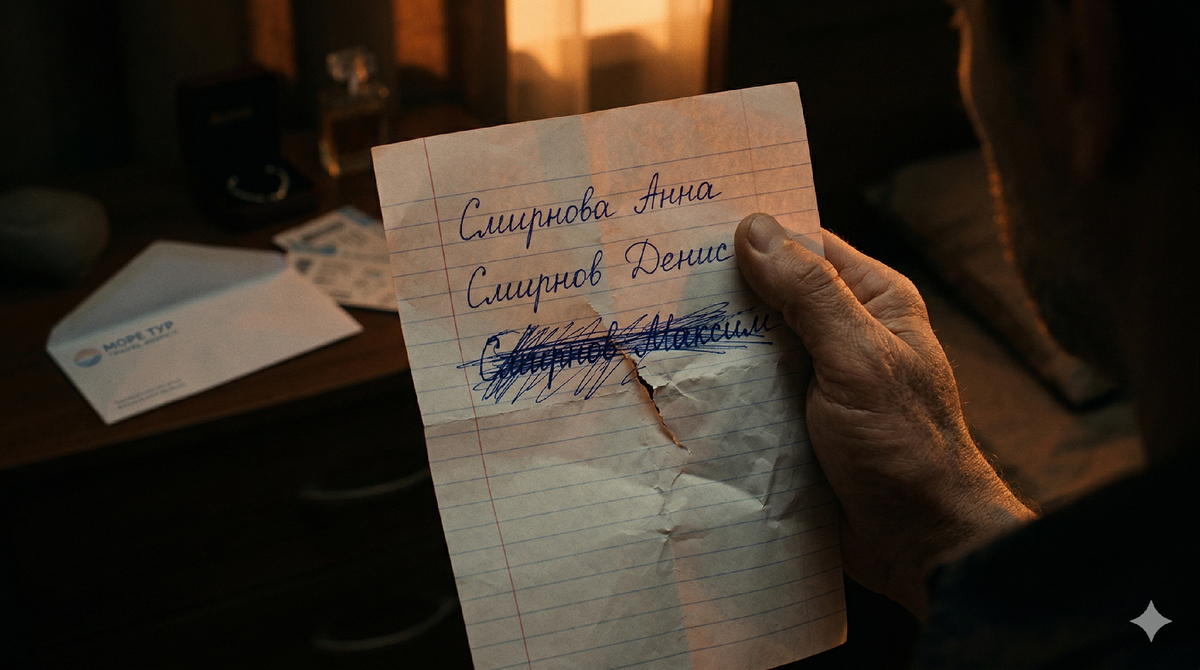 Смирнова Анна
Смирнов Денис
Смирнов Максим
МОРЕ ТУР
TRAVEL AGENCY